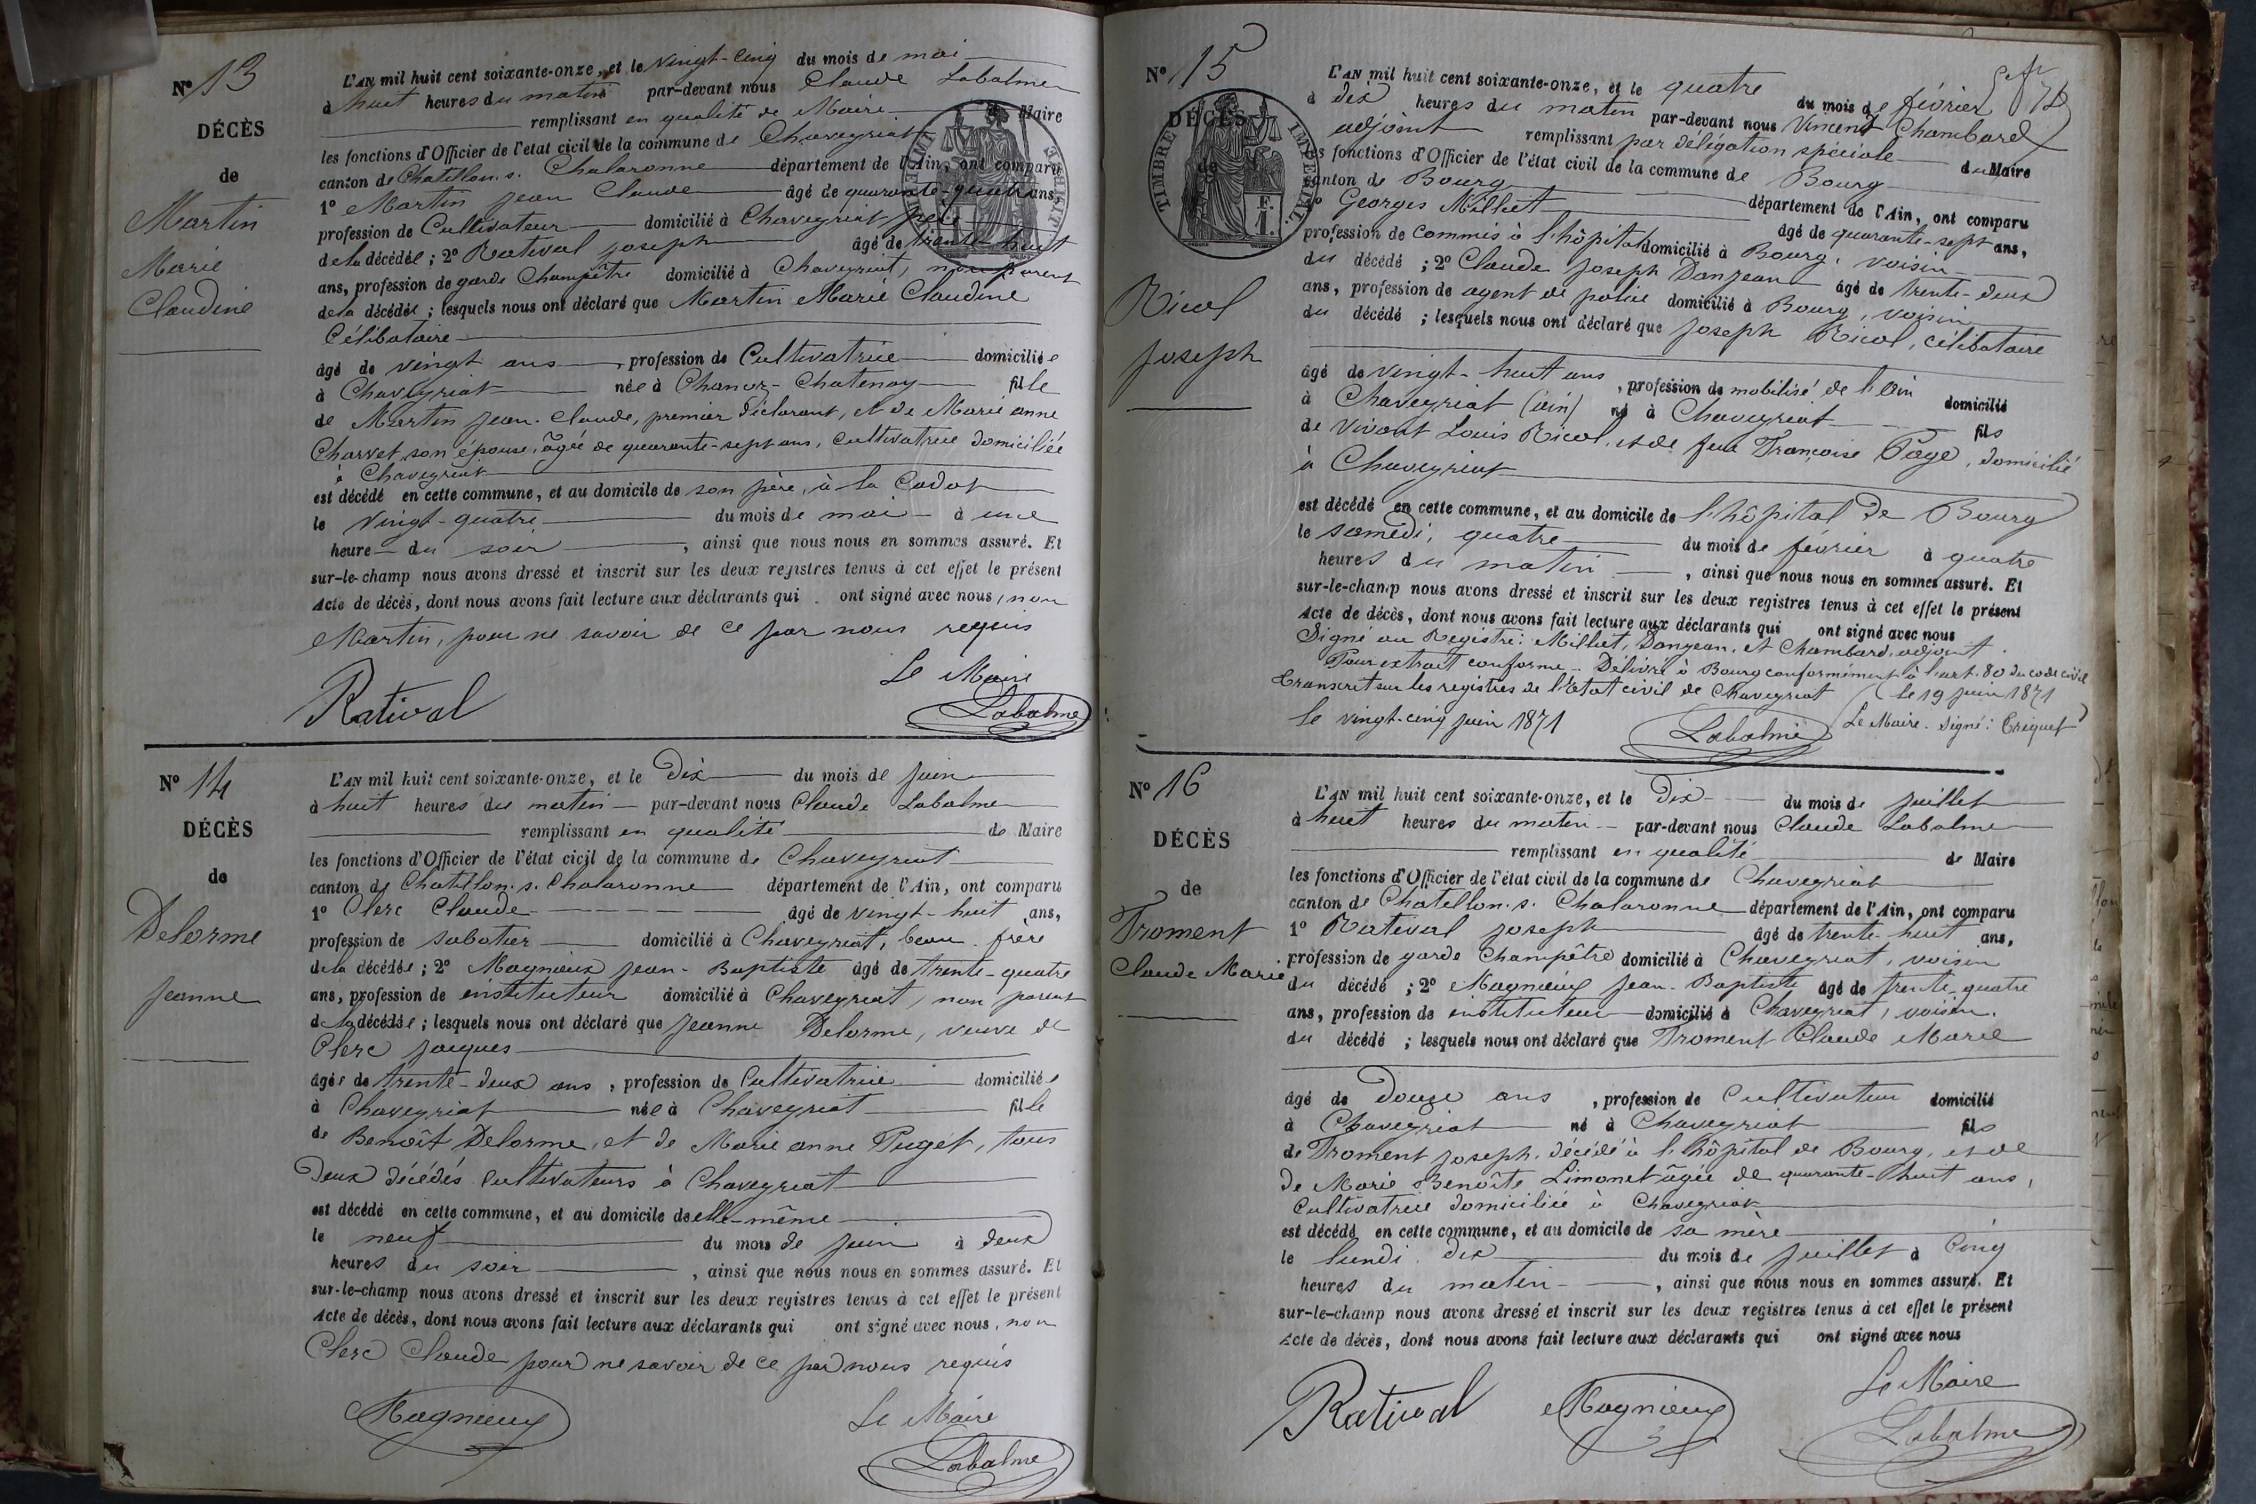 Nº 13
DÉCÈS
de
Martin
Marie
Claudine
L'AN mil huit cent soixante-onze, et le vingt-cinq du mois de mai
à huit heures du matin par-devant nous Claude Labalme
remplissant en qualité de Maire Maire
les fonctions d'Officier de l'état civil de la commune de Chaveyriat
canton de Chatillon. s. Chalaronne département de l'Ain, ont comparu
1º Martin Jean Claude âgé de quarante-quatre ans,
profession de Cultivateur domicilié à Chaveyriat père
de la décédée ; 2º Ratival Joseph âgé de trente-huit
ans, profession de garde Champêtre domicilié à Chaveyriat, non parent
de la décédée ; lesquels nous ont déclaré que Martin Marie Claudine
Célibataire
âgé de vingt ans, profession de Cultivatrice domiciliée
à Chaveyriat née à Chanoz-Chatenay fille
de Martin Jean-Claude, premier déclarant, et de Marie anne
Charvet son épouse, âgée de quarante-sept ans, cultivatrice domiciliée
à Chaveyriat
est décédé en cette commune, et au domicile de son père, à la
le vingt-quatre du mois de mai à une
heure du soir, ainsi que nous nous en sommes assuré. Et
sur-le-champ nous avons dressé et inscrit sur les deux registres tenus à cet effet le présent
Acte de décès, dont nous avons fait lecture aux déclarants qui ont signé avec nous, non
Martin, pour ne savoir de ce par nous requis
Le Maire
Ratival Labalme
Nº 14
DÉCÈS
de
Delorme
Jeanne
L'AN mil huit cent soixante-onze, et le Dix du mois de juin
à huit heures du matin par-devant nous Claude Labalme
remplissant en qualité de Maire
les fonctions d'Officier de l'état civil de la commune de Chaveyriat
canton de Chatillon. s. Chalaronne département de l'Ain, ont comparu
1º Clerc Claude âgé de vingt-huit ans,
profession de sabotier domicilié à Chaveyriat, beau-frère
de la décédée ; 2º Magnieux Jean-Baptiste âgé de trente-quatre
ans, profession de instituteur domicilié à Chaveyriat, non parent
de la décédée ; lesquels nous ont déclaré que Jeanne Delorme, veuve de
Clerc Jacques
âgée de trente-deux ans, profession de Cultivatrice domiciliée
à Chaveyriat née à Chaveyriat fille
de Benoît Delorme, et de Marie anne Puget, tous
Deux décédés cultivateurs à Chaveyriat
est décédé en cette commune, et au domicile de elle-même
le neuf du mois de juin à deux
heures du soir, ainsi que nous nous en sommes assuré. Et
sur-le-champ nous avons dressé et inscrit sur les deux registres tenus à cet effet le présent
Acte de décès, dont nous avons fait lecture aux déclarants qui ont signé avec nous, non
Clerc Claude pour ne savoir de ce par nous requis
Magnieux Le Maire
Labalme
Nº 15
DÉCÈS
de
TIMBRE IMPERIAL
F. 1.
Nicol
Joseph
L'AN mil huit cent soixante-onze, et le quatre du mois de février
à dix heures du matin par-devant nous Vincent Chambard
adjoint remplissant par délégation spéciale du Maire
les fonctions d'Officier de l'état civil de la commune de Bourg
canton de Bourg département de l'Ain, ont comparu
1º Georges Millet âgé de quarante-sept ans,
profession de commis à l'hôpital domicilié à Bourg, voisin
du décédé ; 2º Claude Joseph Danjean âgé de trente-deux
ans, profession de agent de police domicilié à Bourg, voisin
du décédé ; lesquels nous ont déclaré que Joseph Nicol, célibataire
âgé de vingt-huit ans, profession de mobilisé de l'Ain domicilié
à Chaveyriat (Ain) né à Chaveyriat fils
de vivant Louis Nicol, et de feue Françoise Page, domicilié
à Chaveyriat
est décédé en cette commune, et au domicile de l'hôpital de Bourg
le samedi, quatre du mois de février à quatre
heures du matin, ainsi que nous nous en sommes assuré. Et
sur-le-champ nous avons dressé et inscrit sur les deux registres tenus à cet effet le présent
Acte de décès, dont nous avons fait lecture aux déclarants qui ont signé avec nous
Signé au Registre: Millet, Danjean, et Chambard, adjoint.
Pour extrait conforme. Délivré à Bourg conformément à l'art. 80 du code civil
Transcrit sur les registres de l'Etat civil de Chaveyriat le 19 juin 1871
le vingt-cinq juin 1871 Labalme Le Maire. Signé:
Nº 16
DÉCÈS
de
Froment
Claude Marie
L'AN mil huit cent soixante-onze, et le Dix du mois de juillet
à huit heures du matin par-devant nous Claude Labalme
remplissant en qualité de Maire
les fonctions d'Officier de l'état civil de la commune de Chaveyriat
canton de Chatellon. s. Chalaronne département de l'Ain, ont comparu
1º Ratival Joseph âgé de trente-huit ans,
profession de garde Champêtre domicilié à Chaveyriat, voisin
du décédé ; 2º Magnieux Jean-Baptiste âgé de trente-quatre
ans, profession de instituteur domicilié à Chaveyriat, voisin.
du décédé ; lesquels nous ont déclaré que Froment Claude Marie
âgé de Douze ans, profession de Cultivateur domicilié
à Chaveyriat né à Chaveyriat fils
de Froment Joseph, décédé à l'hôpital de Bourg, et de
de Marie Benoîte Limonet âgée de quarante-huit ans,
Cultivatrice domiciliée à Chaveyriat
est décédé en cette commune, et au domicile de sa mère
le lundi dix du mois de juillet à Cinq
heures du matin, ainsi que nous nous en sommes assuré. Et
sur-le-champ nous avons dressé et inscrit sur les deux registres tenus à cet effet le présent
Acte de décès, dont nous avons fait lecture aux déclarants qui ont signé avec nous
Le Maire
Ratival Magnieux Labalme